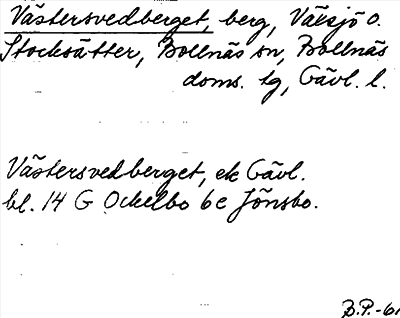 Västersvedberget, berg, Växsjö o.
Stocksätter, Bollnäs sn, Bollnäs
doms. tg, Gävl. l.
Västersvedberget, ek Gävl.
bl. 14 G Ockelbo 6e Jönsbo.
B.P.-61